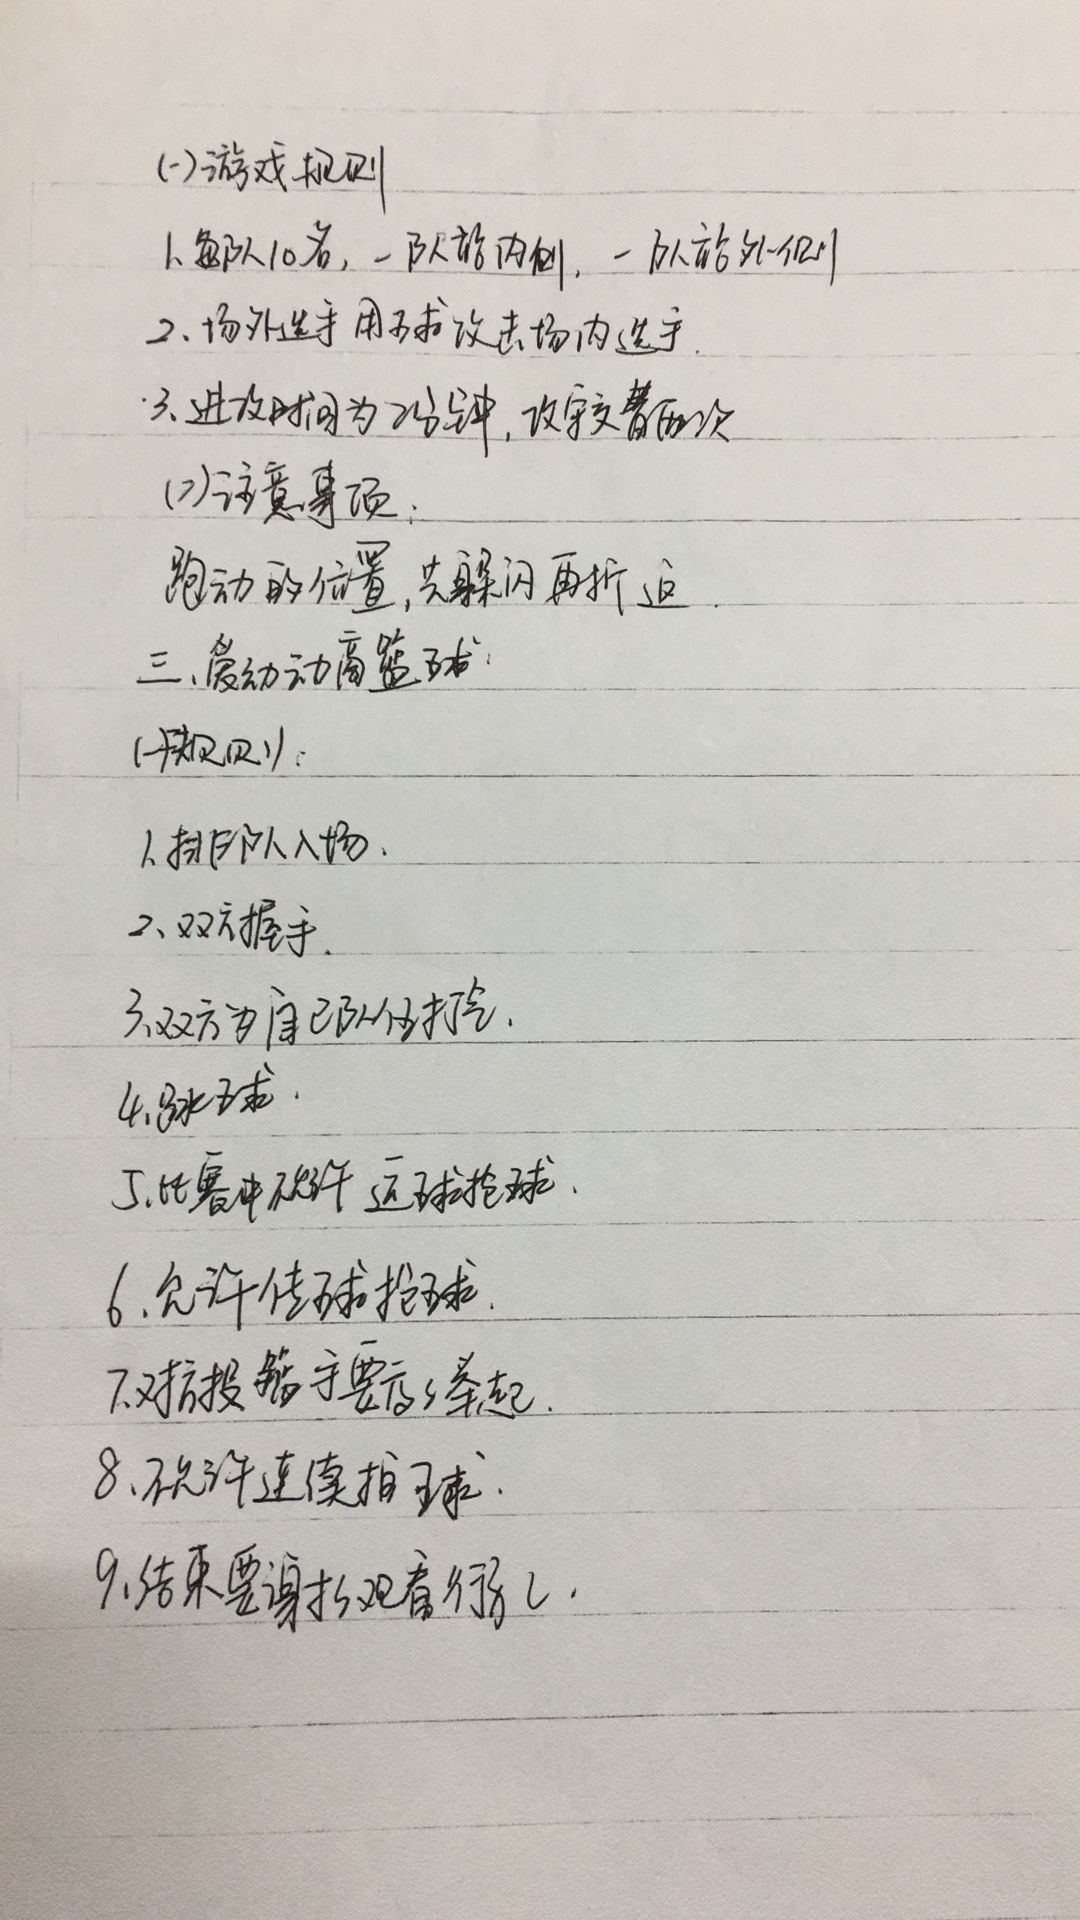 (一)游戏规则
1、每队10名,一队站内侧,一队站外侧
2、场外选手用球攻击场内选手.
3、进攻时间为2分钟,攻守交替两次
(二)注意事项:
跑动的位置,先躲闪再折返.
三、爱幼动商篮球:
(一)规则:
1、排队入场.
2、双方握手.
3、双方为自己队伍打气.
4、跳球.
5、比赛中不允许运球抢球.
6、允许传球抢球.
7、对抗投篮手要高举起.
8、不允许连续拍球.
9、结束要谢